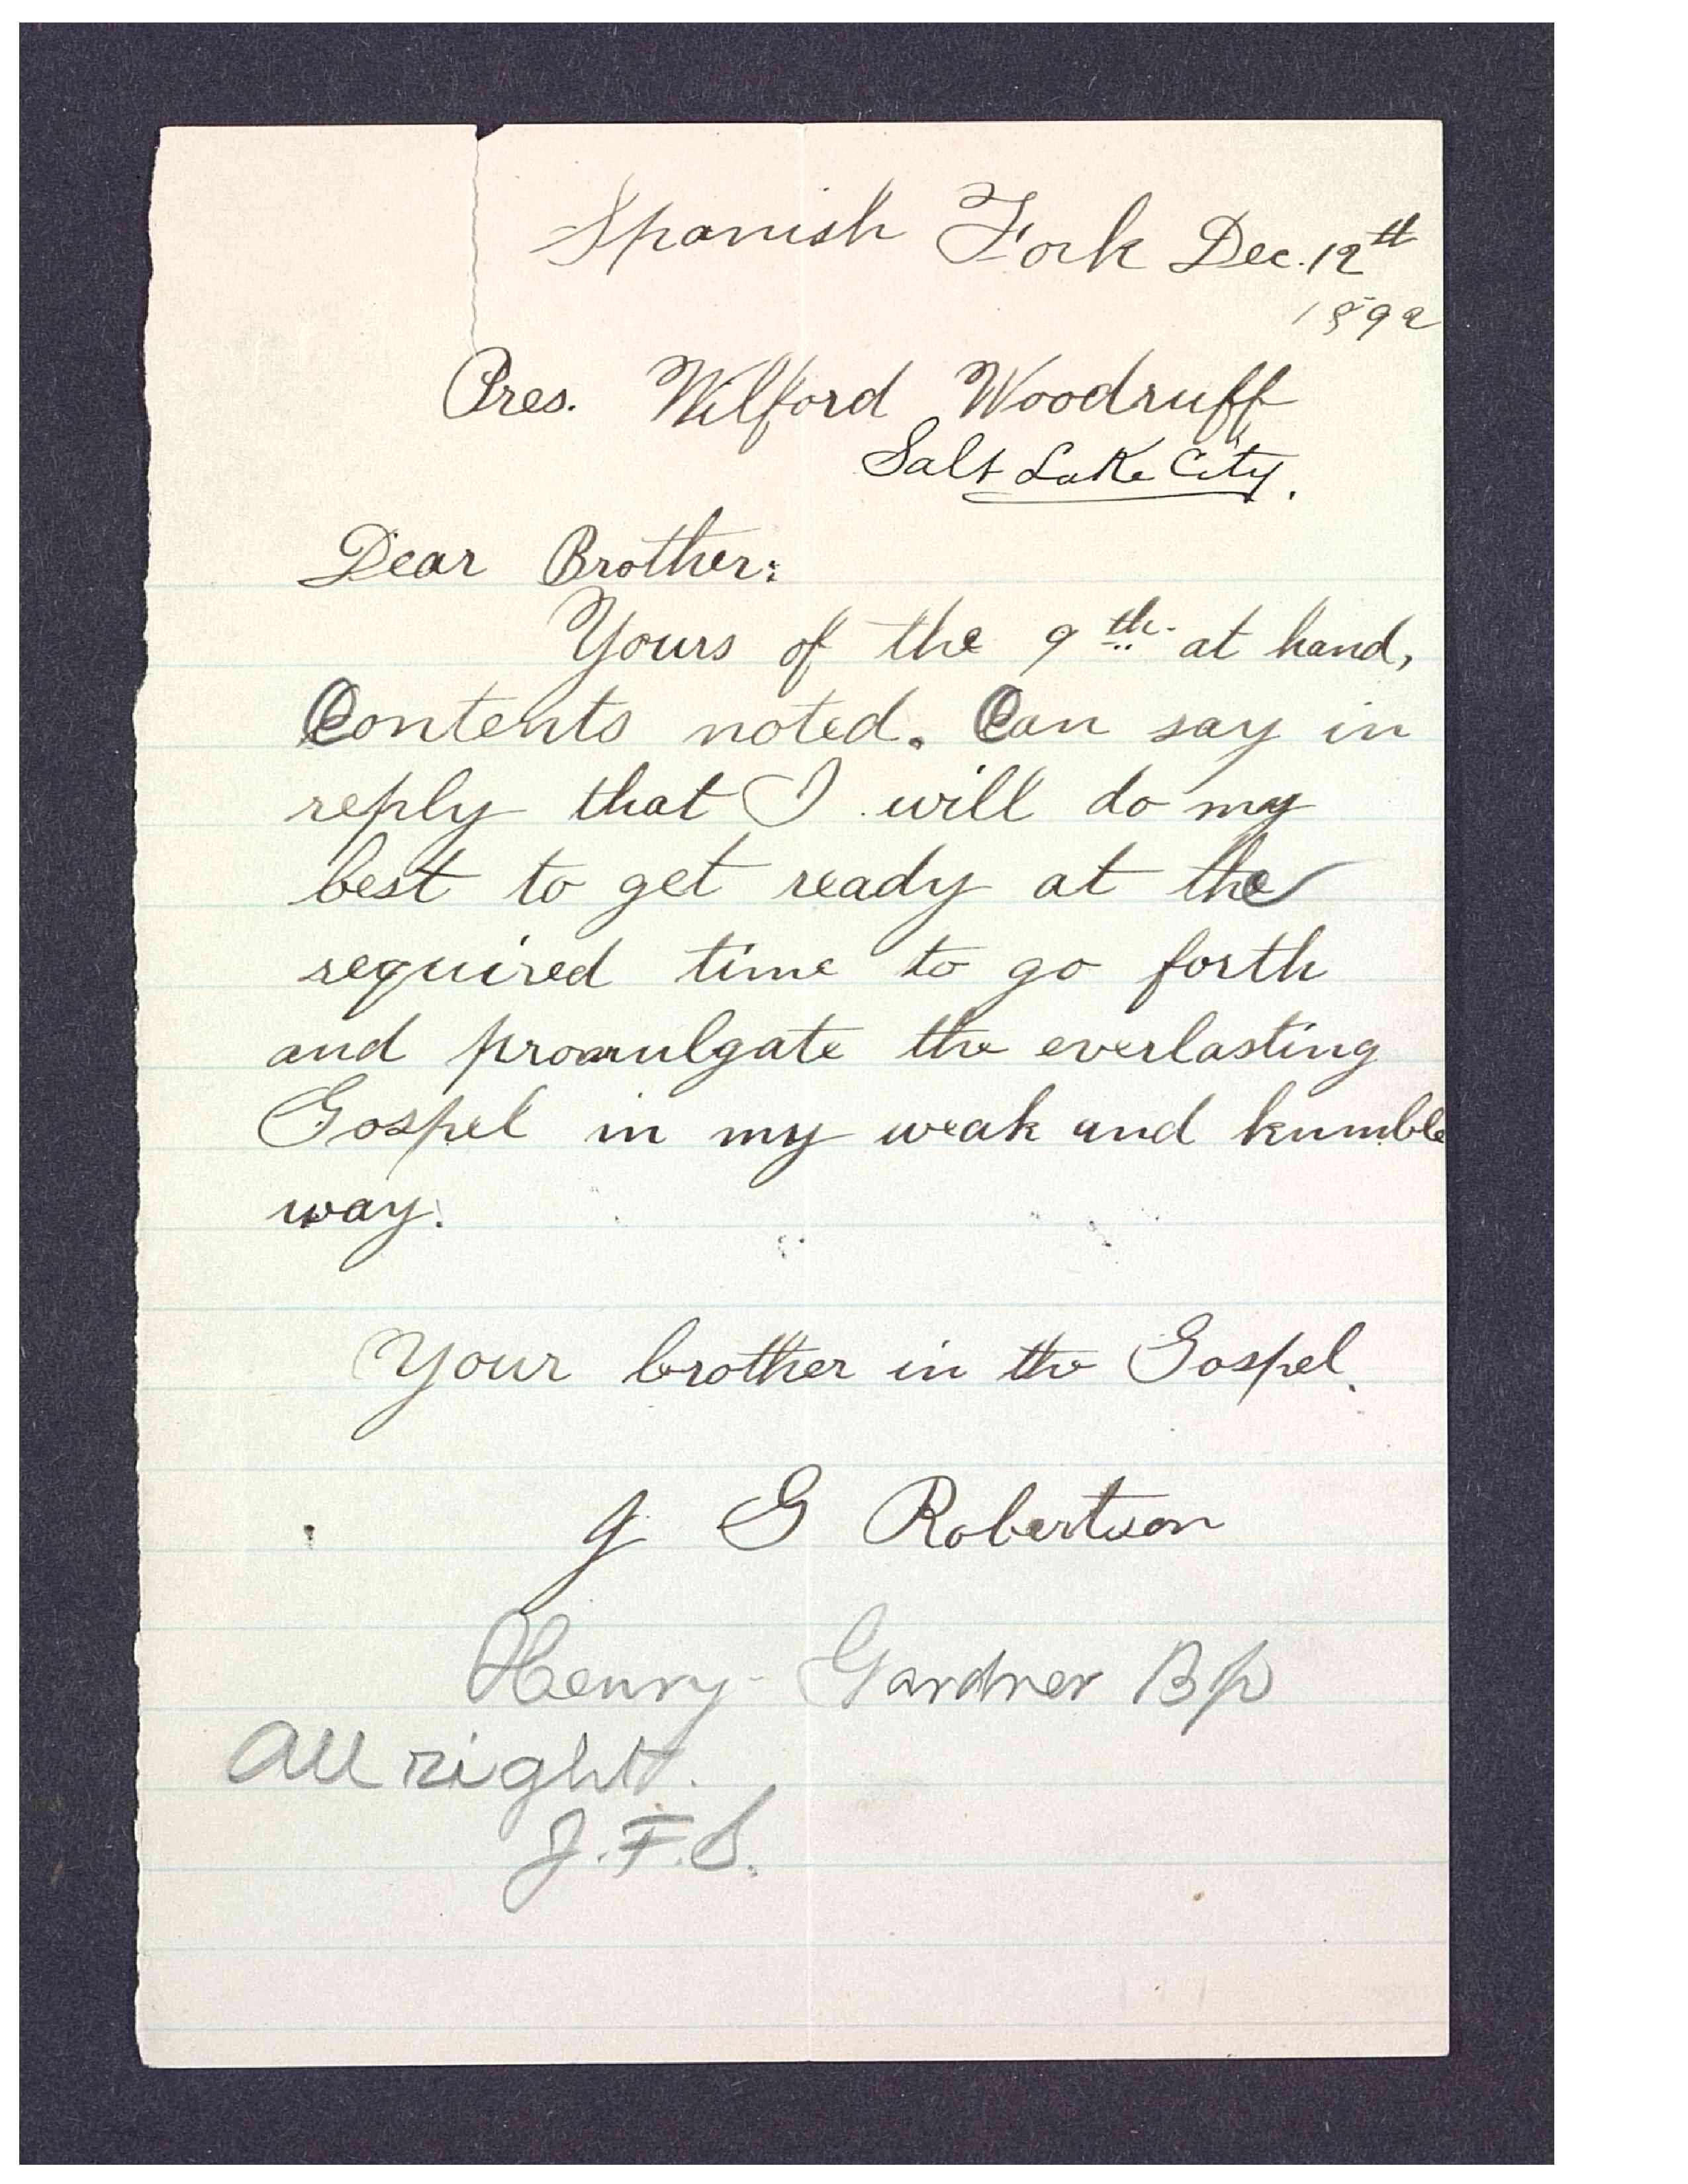 Spanish Fork Dec. 12th
1892
Pres. Wilford Woodruff
Salt Lake City.
Dear Brother:
Yours of the 9th. at hand,
Contents noted. Can say in
reply that I will do my
best to get ready at the
required time to go forth
and promulgate the everlasting
Gospel in my weak and humble
way.
Your brother in the Gospel.
J G Robertson
Henry Gardner Bp
All right.
J.F.S.